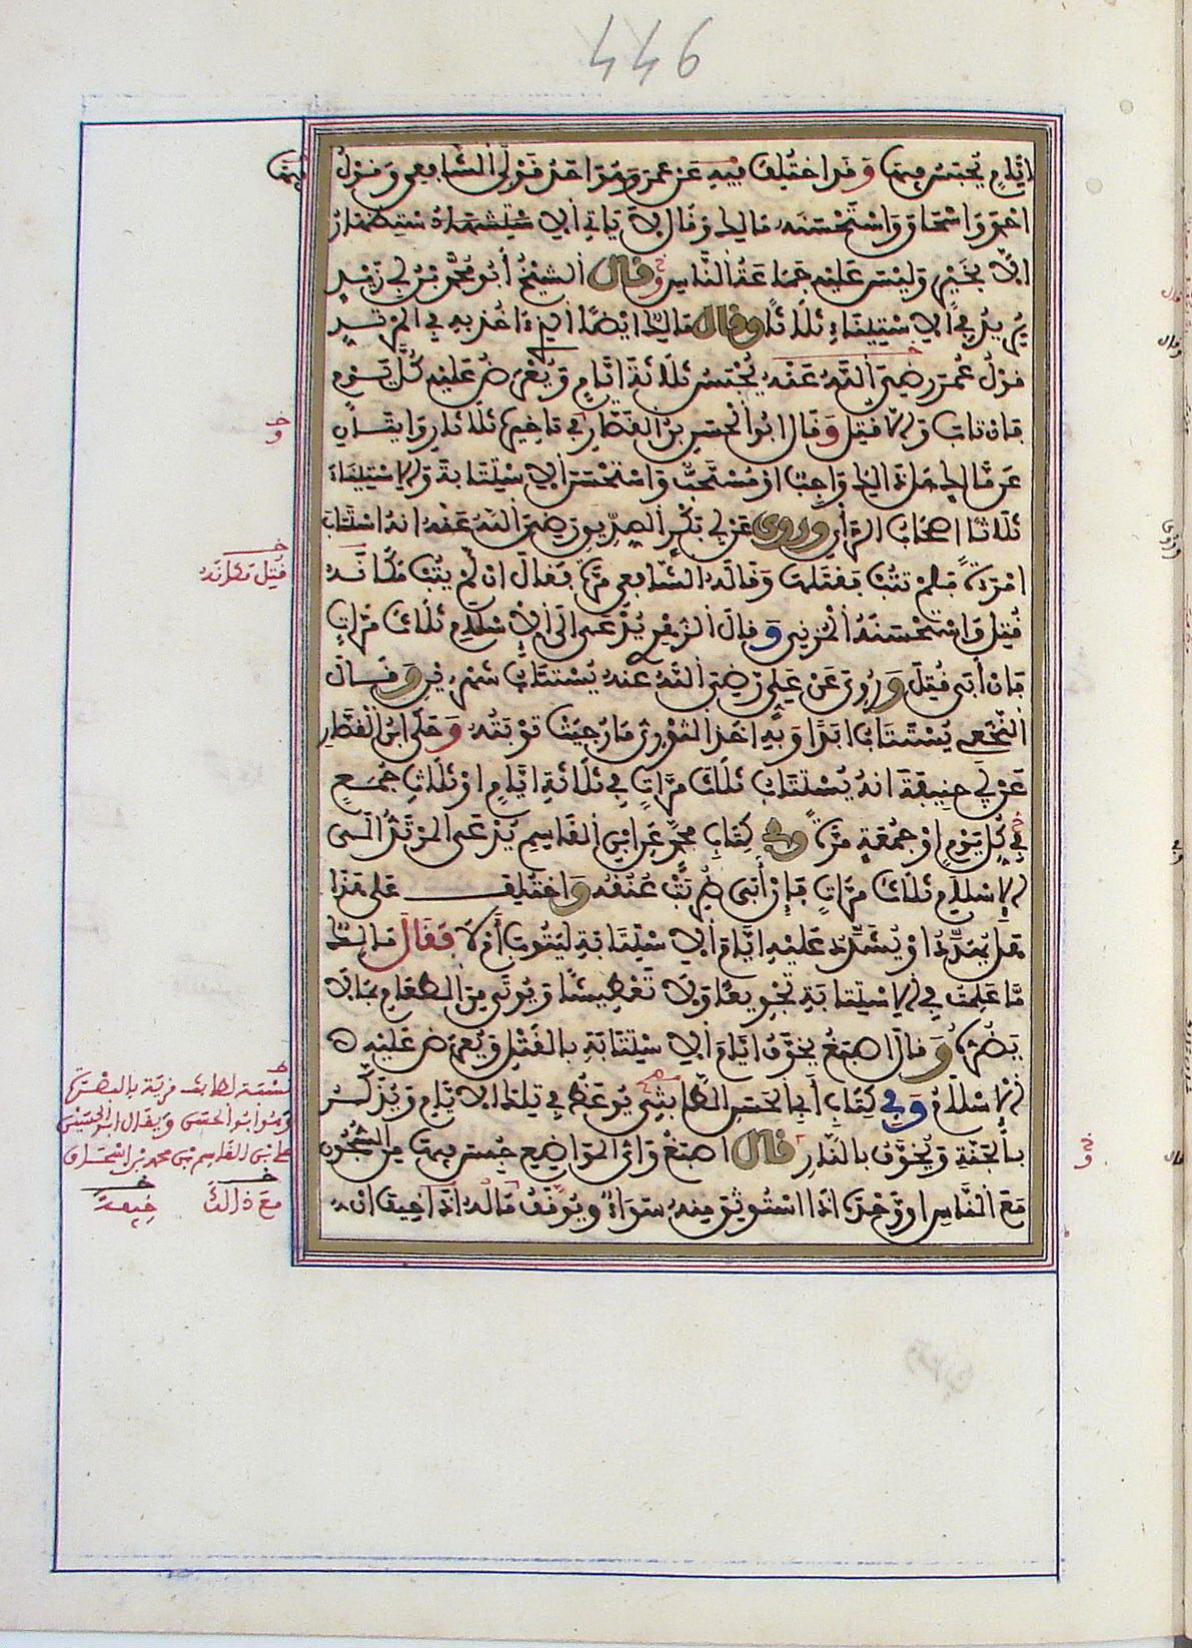 446
ايام يحبس فيها وقد اختلف فيه عن عمر وهو احد قولي الشافعي وقول
احمد واسحاق واستحسنه مالك وقال لا ياتي الاستظهار
الا بخير وليس عليه جماعة الناس وقال الشيخ أبو محمد بن ابي زيد
يريد في الاستيناء ثلاثا وقال مالك ايضا الذي ءاخذ به في المرتد
قول عمر رضي الله عنه يحبس ثلاثة ايام ويعرض عليه كل يوم
فان تاب والا قتل وقال ابو الحسن بن القصار في تاخيره ثلاثا روايتان
عن مالك هل ذالك واجب او مستحب واستحسن الاستتابة والاستيناء
ثلاثا اصحاب الرأي وروى عن ابي بكر الصديق رضي الله عنه انه استتاب
امرأة فلم تتب فقتلها وقاله الشافعي مرة فقال ان لم يتب مكانه
قتل واستحسنه المزني وقال الزهري يدعى الى الاسلام ثلاث مرات
فان أبى قتل وروي عن علي رضي الله عنه يستتاب شهرين وقال
النخعي يستتاب ابدا وبه اخذ الثوري ما رجيت توبته وحكى ابن القصار
عن ابي حنيفة انه يستتاب ثلاث مرات في ثلاثة ايام او ثلاث جمع
في كل يوم او جمعة مرة وفي كتاب محمد عن ابن القاسم يدعى المرتد الى
الاسلام ثلاث مرات فإن أبى ضربت عنقه واختلف على هذا
هل يهدد او يشدد عليه ايام الاستتابة ليتوب أم لا فقال مالك
ما علمت في الاستتابة تجويعا ولا تعطيشا ويوتى من الطعام بما لا
يضره وقال اصبغ يخوف ايام الاستتابة بالقتل ويعرض عليه
الاسلام وفي كتاب أبي الحسن الطابثي يوعظ في تلك الايام ويذكر
بالجنة ويخوف بالنار قال اصبغ واي المواضع حبس فيها من السجون
مع الناس او وحده اذا استوثق منه سواء ويوقف ماله اذا خيف ان
فيها
خ
و
خ
قتل مكانه
نسبة لطابث قرية بالبصرة
وهو أبو الحسن ويقال ابو الحسين
علي بن القاسم بن محمد بن اسحاق
خ
مع ذالك
خ
خيفة